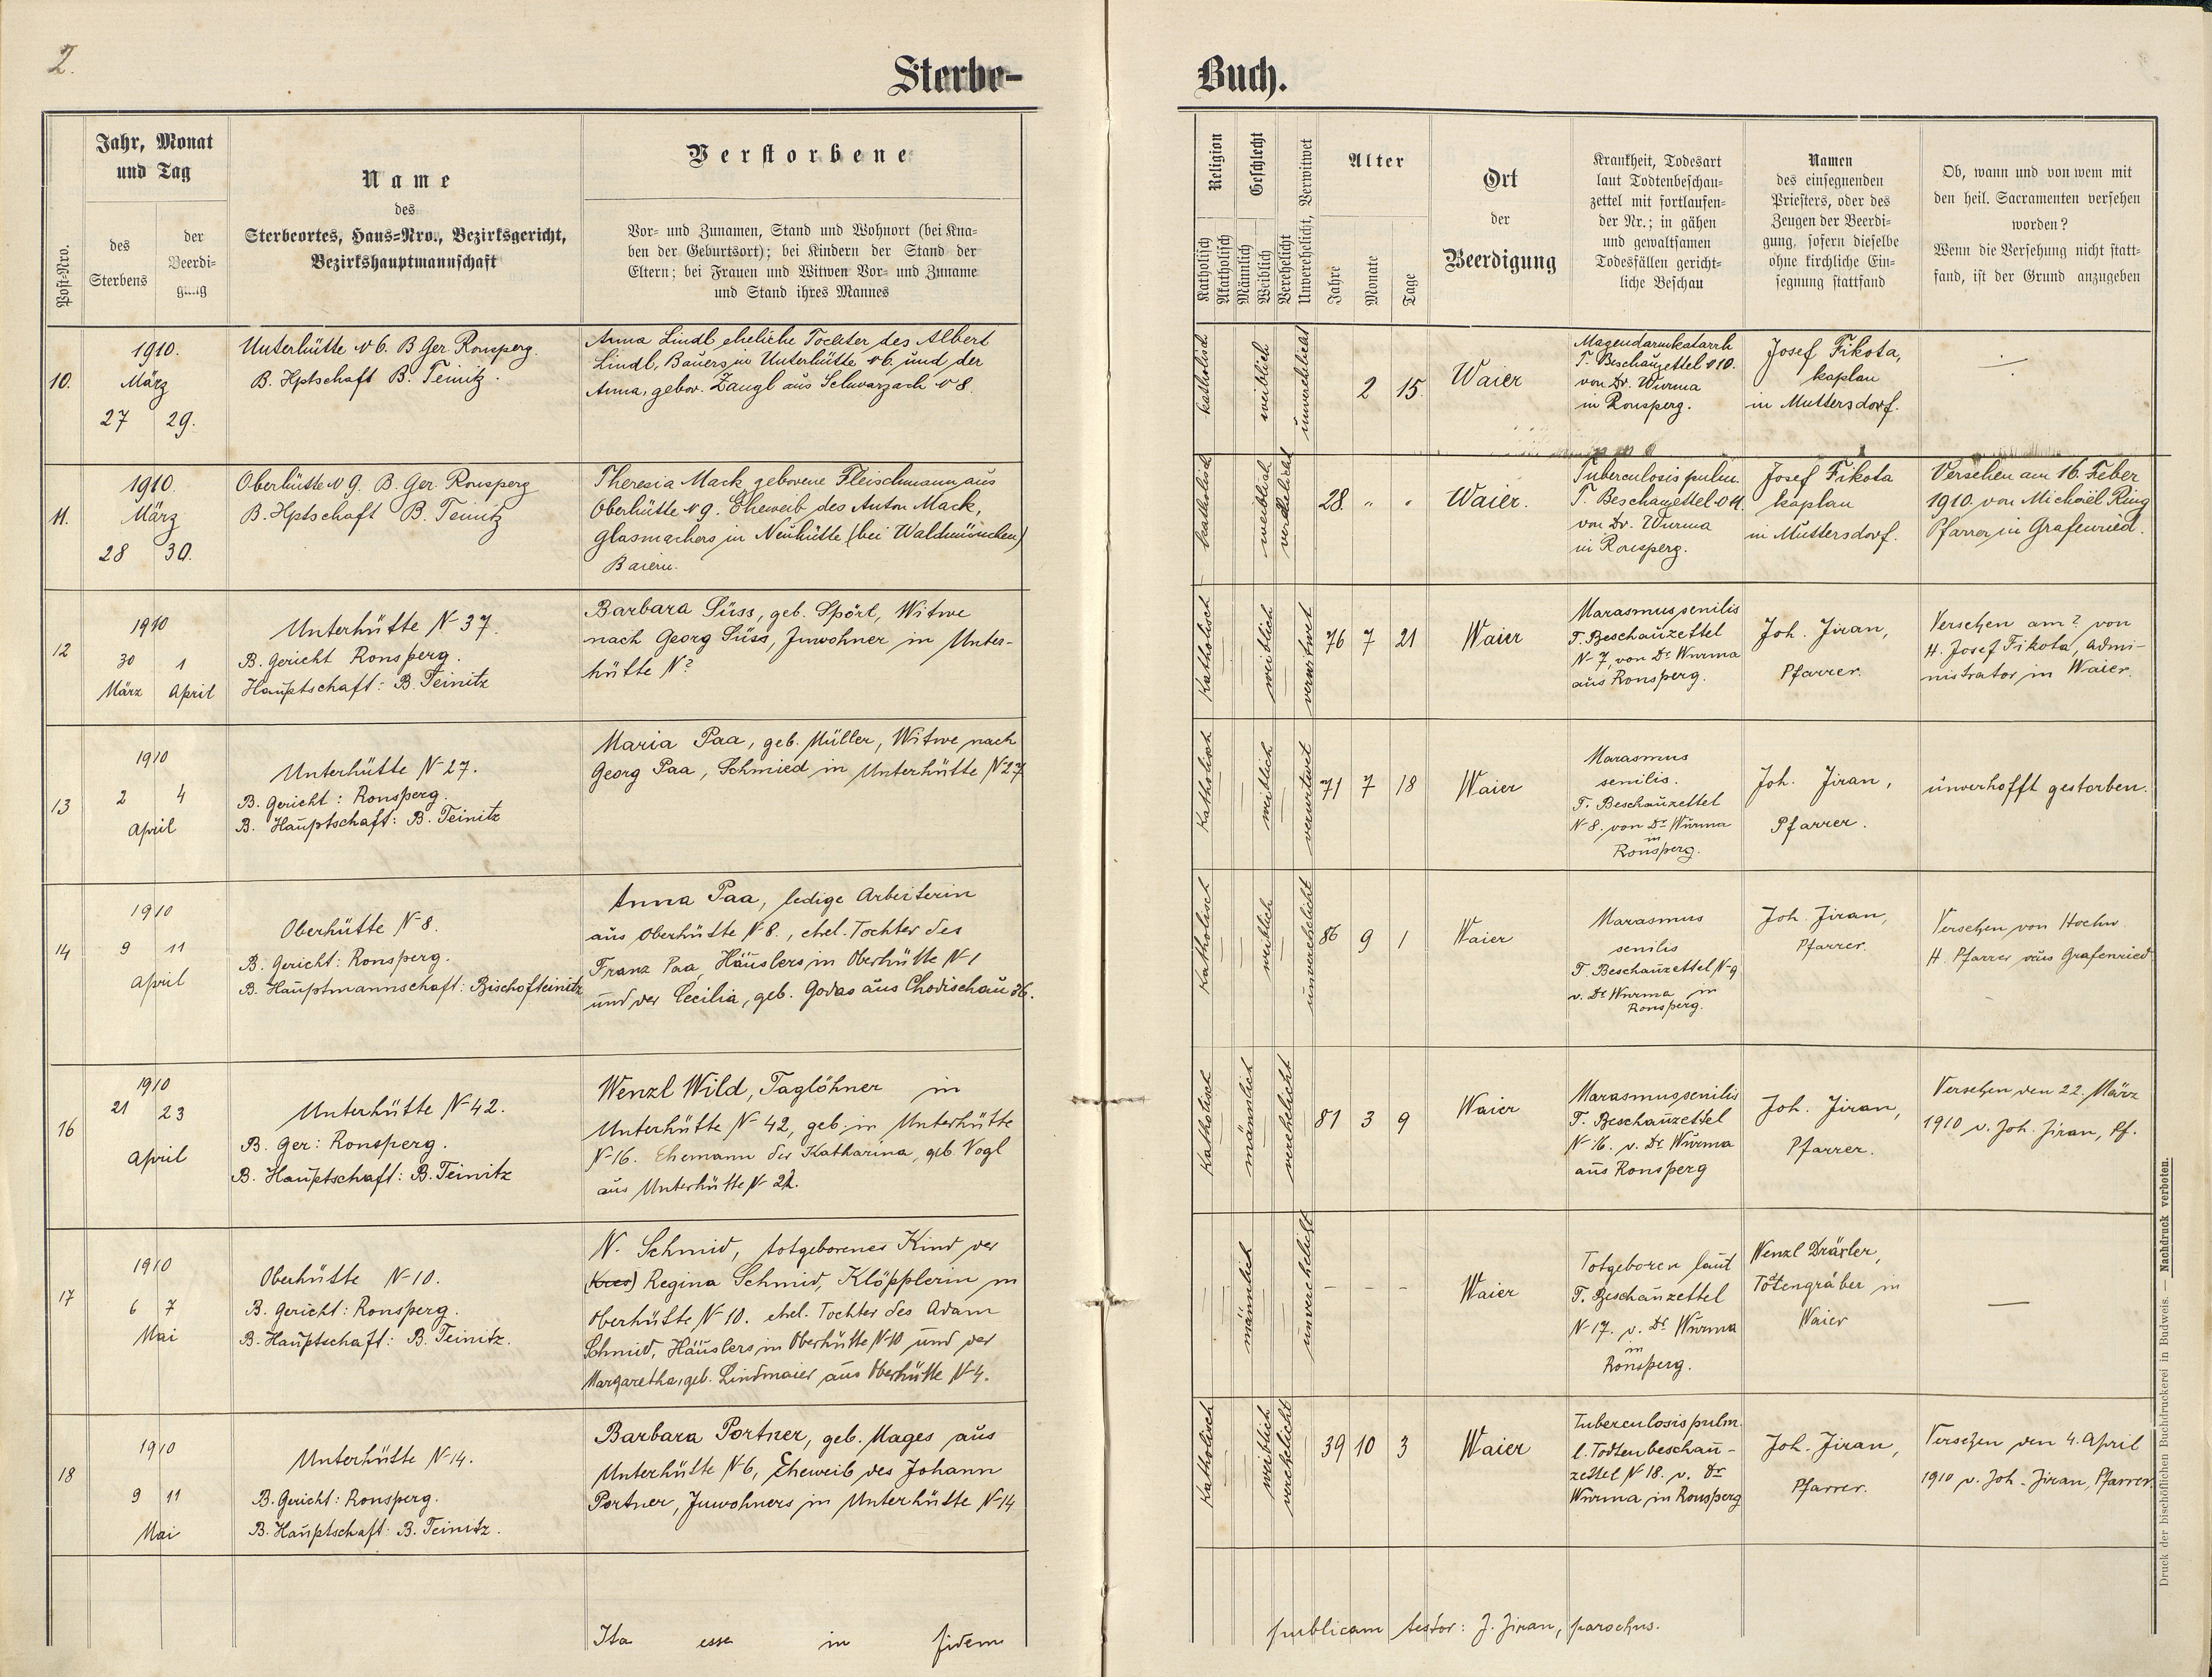 2.
Sterbe-
Buch.
Post-Nro.
Jahr, Monat
und Tag
des
Sterbens
der
Beerdi-
gung
Name
des
Sterbeortes, Haus-Nro., Bezirksgericht,
Bezirkshauptmannschaft
Verstorbene
Vor- und Zunamen, Stand und Wohnort (bei Kna-
ben der Geburtsort); bei Kindern der Stand der
Eltern; bei Frauen und Witwen Vor- und Zuname
und Stand ihres Mannes
Religion
Katholisch
Akatholisch
Geschlecht
Männlich
Weiblich
Verehelicht
Unverehelicht, Verwitwet
Alter
Jahre
Monate
Tage
Ort
der
Beerdigung
Krankheit, Todesart
laut Todtenbeschau-
zettel mit fortlaufen-
der Nr.; in gähen
und gewaltsamen
Todesfällen gericht-
liche Beschau
Namen
des einsegnenden
Priesters, oder des
Zeugen der Beerdi-
gung, sofern dieselbe
ohne kirchliche Ein-
segnung stattfand
Ob, wann und von wem mit
den heil. Sacramenten versehen
worden?
Wenn die Versehung nicht statt-
fand, ist der Grund anzugeben
10.
1910.
März
27 29.
Unterhütte N 6. B Ger. Ronsperg.
B. Hptschaft B. Teinitz.
Anna Lindl eheliche Tochter des Albert
Lindl, Bauers in Unterhütte N 6. und der
Anna, gebor. Zangl aus Schwarzach N 8.
katholisch
weiblich
unverehelicht
2 15.
Waier
Magendarmkatarrh
T. Beschauzettel N 10.
von Dr. Wurma
in Ronsperg.
Josef Fikota,
kaplan
in Muttersdorf.
11.
1910.
März
28 30.
Oberhütte N 9. B. Ger. Ronsperg
B. Hptschaft B. Teinitz
Theresia Mack geborene Fleischmann aus
Oberhütte N 9. Eheweib des Anton Mack,
Glasmachers in Neuhütte (bei Waldmünchen)
Baiern.
katholisch
weiblich
verehelicht
28. " "
Waier.
Tuberculosis pulm.
T. Beschauzettel N 11.
von Dr. Wurma
in Ronsperg.
Josef Fikota
kaplan
in Muttersdorf.
Versehen am 16. Feber
1910. von Michael Ring
Pfarrer in Grafenried.
12
1910
30 1
März April
Unterhütte N 37.
B. Gericht Ronsperg.
Hauptschaft: B. Teinitz
Barbara Süss, geb. Spörl, Witwe
nach Georg Süss, Inwohner in Unter-
hütte N ?
Katholisch
weiblich
verwitwet
76 7 21
Waier
Marasmus senilis
T. Beschauzettel
N 7, von Dr Wurma
aus Ronsperg.
Joh. Jiran,
Pfarrer.
Versehen am ? von
H. Josef Fikota, Admi-
nistrator in Waier.
13
1910
2 4
April
Unterhütte N 27.
B. Gericht: Ronsperg.
B. Hauptschaft: B. Teinitz
Maria Paa, geb. Müller, Witwe nach
Georg Paa, Schmied in Unterhütte N 27
Katholisch
weiblich
verwitwet
71 7 18
Waier
Marasmus
senilis.
T. Beschauzettel
N 8. von Dr Wurma
in
Ronsperg.
Joh. Jiran,
Pfarrer.
unverhofft gestorben.
14
1910
9 11
April
Oberhütte N 8.
B. Gericht: Ronsperg.
B. Hauptmannschaft: Bischofteinitz
Anna Paa, ledige Arbeiterin
aus Oberhütte N 8., ehel. Tochter des
Franz Paa, Häuslers in Oberhütte N 1
und der Cecilia, geb. Godas aus Chodischau 36.
Katholisch
weiblich
unverehelicht
86 9 1
Waier
Marasmus
senilis
T. Beschauzettel N 9
v. Dr Wurma in
Ronsperg.
Joh. Jiran,
Pfarrer.
Versehen von Hochw.
H. Pfarrer aus Grafenried
16
1910
21 23
April
Unterhütte N 42.
B. Ger: Ronsperg.
B. Hauptschaft: B. Teinitz
Wenzl Wild, Taglöhner in
Unterhütte N 42, geb. in Unterhütte
N 16. Ehemann der Katharina, geb. Vogl
aus Unterhütte N 22.
Katholisch
männlich
verehelicht
81 3 9
Waier
Marasmus senilis
T. Beschauzettel
N 16. v. Dr Wurma
aus Ronsperg
Joh. Jiran,
Pfarrer.
Versehen den 22. März
1910 v. Joh. Jiran, Pf.
17
1910
6 7
Mai
Oberhütte N 10.
B. Gericht: Ronsperg.
B. Hauptschaft: B. Teinitz.
N. Schmid, totgeborenes Kind der
Regina Schmid, Klöpplerin in
Oberhütte N 10. ehel. Tochter des Adam
Schmid, Häuslers in Oberhütte N 10 und der
Margaretha, geb. Lindmaier aus Oberhütte N 4.
männlich
unverehelicht
- - -
Waier
Totgeboren laut
T. Beschauzettel
N 17. v. Dr Wurma
in
Ronsperg.
Wenzl Dräxler,
Totengräber in
Waier
—
18
1910
9 11
Mai
Unterhütte N 14.
B. Gericht: Ronsperg.
B. Hauptschaft: B. Teinitz.
Barbara Portner, geb. Mages aus
Unterhütte N 6, Eheweib des Johann
Portner, Inwohners in Unterhütte N 14
Katholisch
weiblich
verehelicht
39 10 3
Waier
Tuberculosis pulm.
l. Todtenbeschau-
zettel N 18. v. Dr
Wurma in Ronsperg
Joh. Jiran,
Pfarrer.
Versehen den 4. April
1910 v. Joh. Jiran, Pfarrer.
Ita esse in fidem
publicam testor: J. Jiran, parochus.
Druck der bischöflichen Buchdruckerei in Budweis. — Nachdruck verboten.